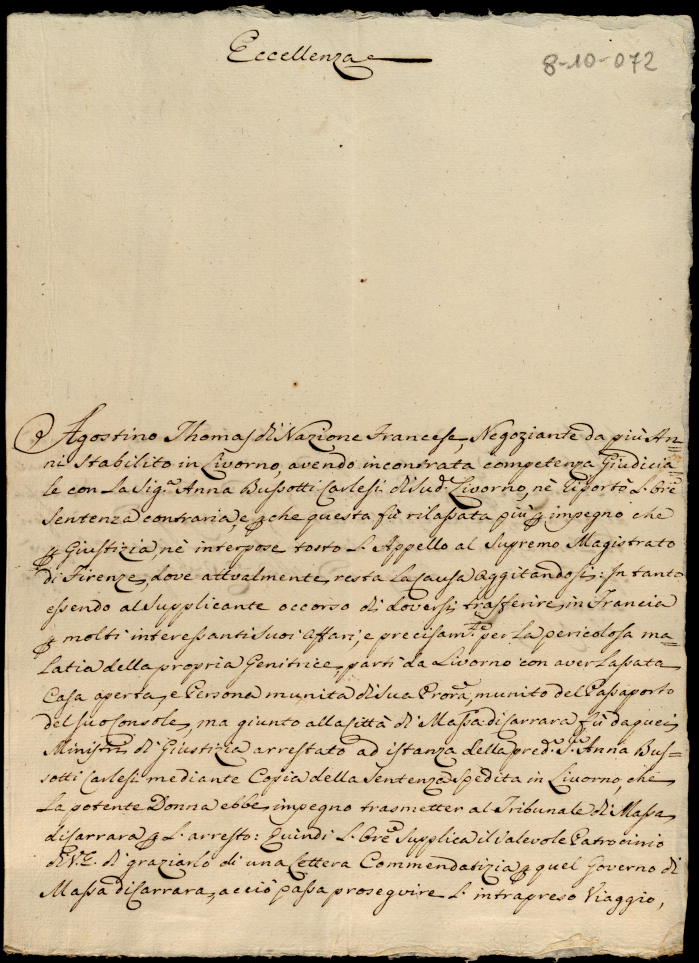 Eccellenza
8-10-072
Agostino Thomas di Nazione Francese, Negoziante da più An=
ni stabilito in Livorno, avendo incontrata competenza Giudicia=
le con La Sig.ª Anna Bussotti Carlesi di Sud.º Livorno, nè riportò L'Ore
Sentenza contraria, e p che questa fù rilassata più p impegno che
p Giustizia, nè interpose tosto L'Appello al Supremo Magistrato
di Firenze, dove attualmente resta La Causa aggitandosi: In tanto
essendo al Supplicante occorso di doversi trasferire in Francia
p molti interessanti suoi affari, e precisam.te per La pericolosa ma=
Latia della propria Genitrice, partì da Livorno con aver Lassata
Casa aperta, e Persona munita di sua Prora, munito del Passaporto
del suo Console, ma giunto alla Città di Massa di Carrara fù da quei
Ministri di Giustizia arrestato ad istanza della pred.ª S.ª Anna Bus=
sotti Carlesi mediante Copia della Sentenza spedita in Livorno, che
La potente Donna ebbe impegno trasmetter al Tribunale di Massa
di Carrara p L'arresto: Quindi L'Ore Supplica il valevole Patrocinio
di V.E. di graziarlo di una Lettera Commendatizia p quel Governo di
Massa di Carrara, acciò possa proseguire L'intrapreso Viaggio,